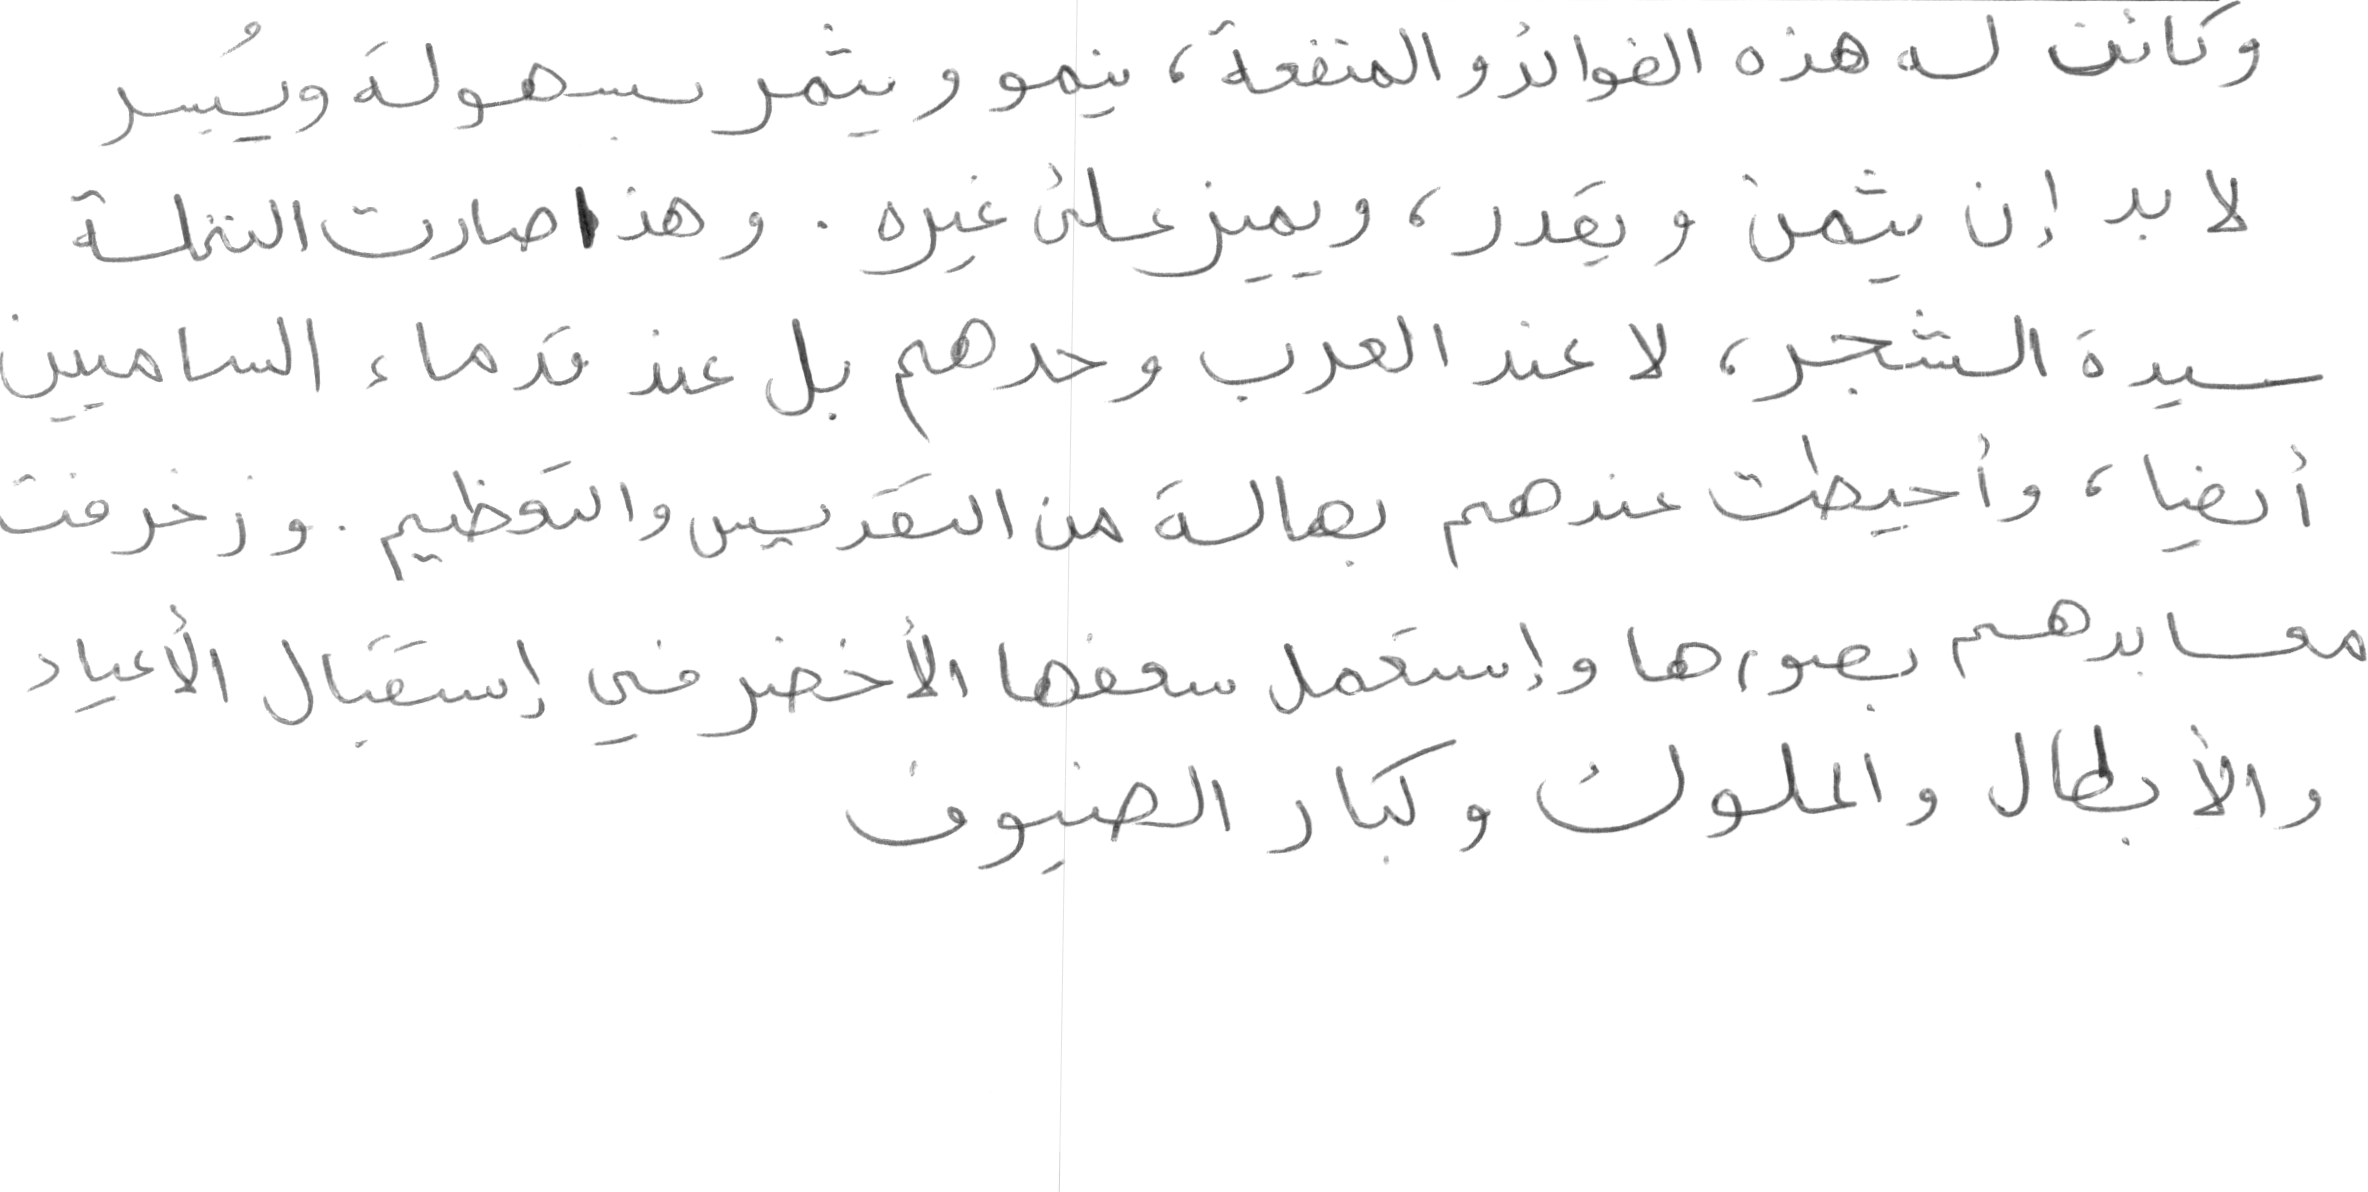 وكانت له هذه الفوائد والمنفعة، ينمو ويثمر بسهولة ويُسر
لا بد إن يثمن ويقدر، ويميز على غيره. وهذا صارت النخلة
سيدة الشجر، لا عند العرب وحدهم بل عند قدماء الساميين
أيضا، وأحيطت عندهم بهالة من التقديس والتعظيم. وزخرفت
معابدهم بصورها وإستعمل سعفها الأخضر في إستقبال الأعياد
والأبطال والملوك وكبار الضيوف